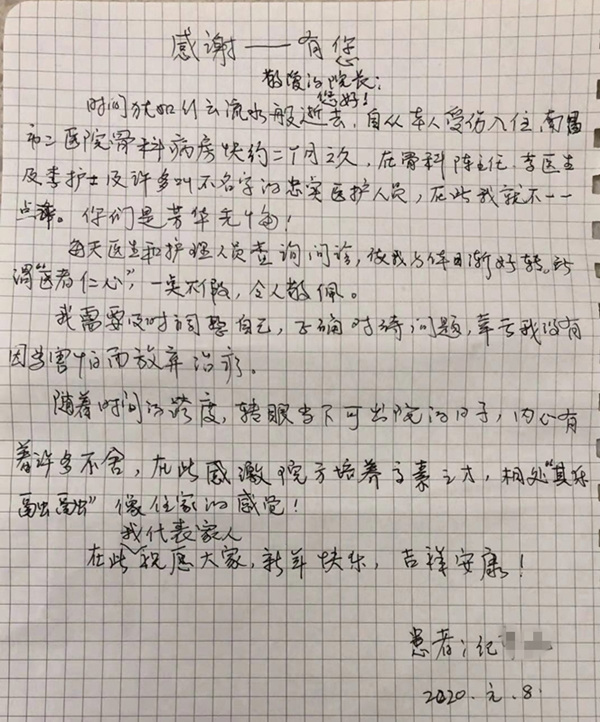 感谢——有您
敬爱的院长:
您好!
时间犹如什么流水般逝去,自从本人受伤入住南昌
市二医院骨科病房快约二个月之久,在骨科陈主任、李医生
及李护士及许多叫不名字的忠实医护人员,在此我就不一一
点谇。你们是芳华无悔!
每天医生和护理人员查询问诊,使我身体日渐好转。所
谓"医者仁心",一点不假,令人敬佩。
我需要及时调整自己,正确对待问题,幸亏我没有
因为害怕而放弃治疗。
随着时间的跨度,转眼当下可出院的日子,内心有
着许多不舍,在此感激院方培养高素之才,相处"其乐
融融"像住家的感觉!
我代表家人
在此祝愿大家,新年快乐,吉祥安康!
患者:纪
2020.元.8.